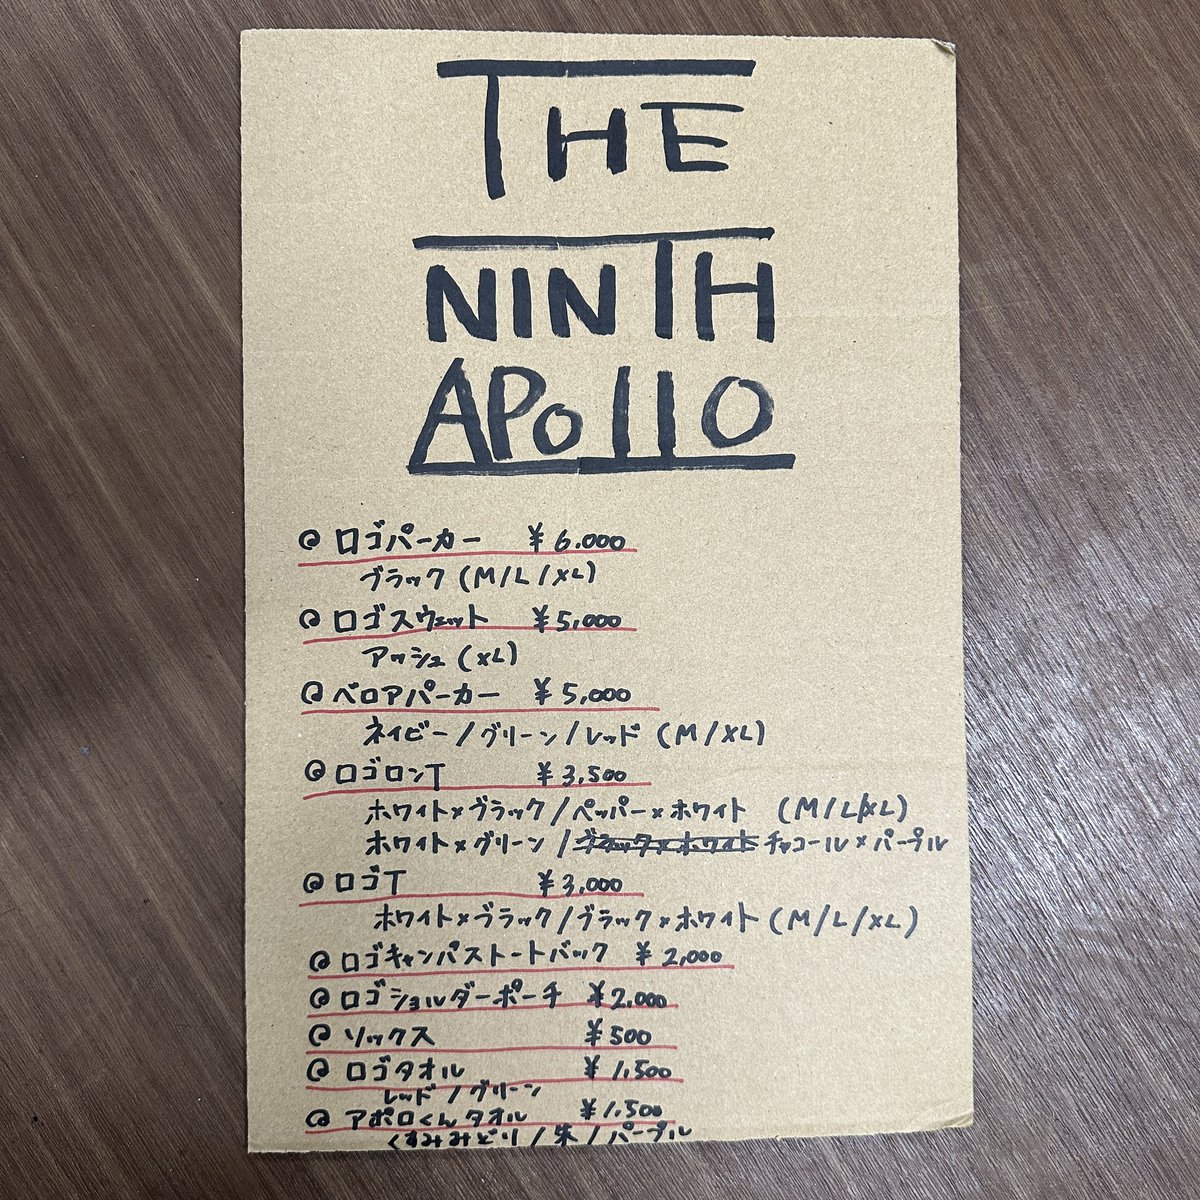 THE
NINTH
APOllO
@ ロゴパーカー ¥6.000
ブラック (M/L/XL)
@ ロゴスウェット ¥5,000
アッシュ (XL)
@ ベロアパーカー ¥5,000
ネイビー/グリーン/レッド (M/XL)
@ ロゴロンT ¥3,500
ホワイト×ブラック/ペッパー×ホワイト (M/L/XL)
ホワイト×グリーン/ブラック×ホワイト チャコール×パープル
@ ロゴT ¥3,000
ホワイト×ブラック/ブラック×ホワイト (M/L/XL)
@ ロゴキャンバストートバック ¥2,000
@ ロゴショルダーポーチ ¥2,000
@ ソックス ¥500
@ ロゴタオル ¥1,500
レッド/グリーン
@ アポロくんタオル ¥1.500
くすみみどり/朱/パープル